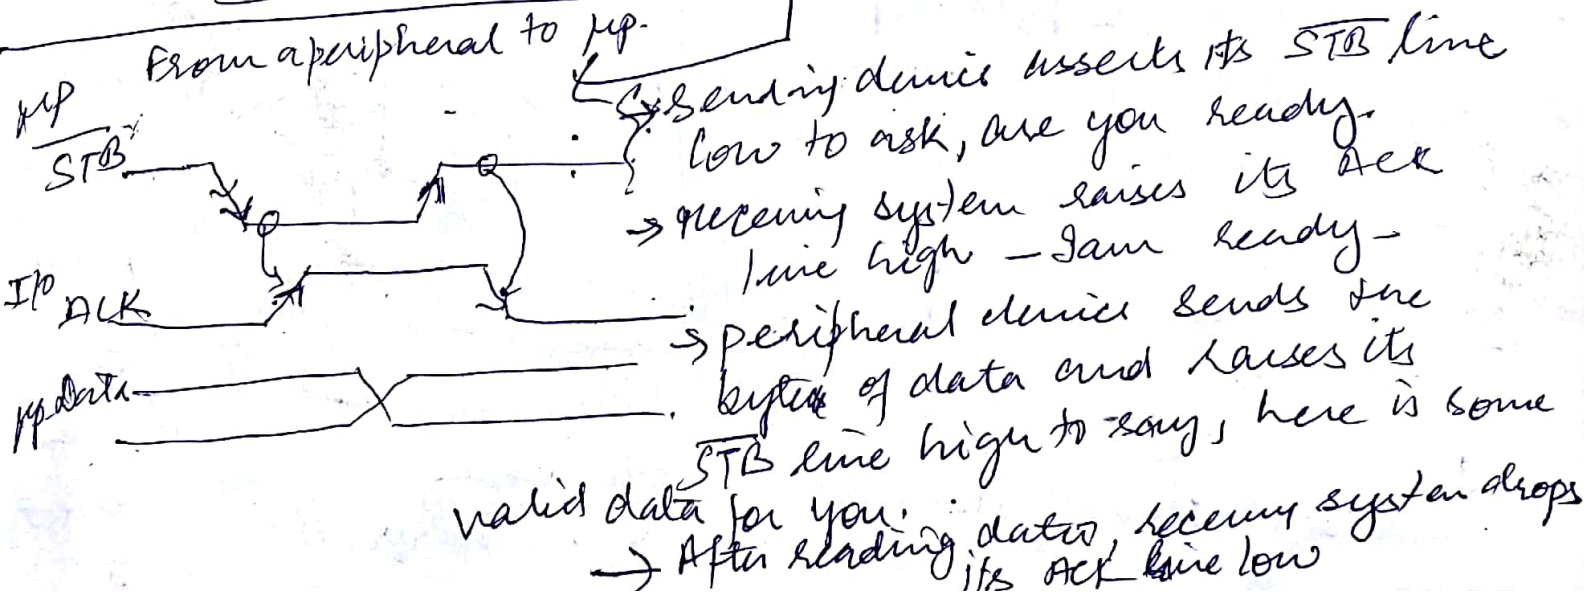 From a peripheral to μp.
μp
S̅T̅B̅
I/O ACK
μp Data
→ Sending device asserts its S̅T̅B̅ line
low to ask, are you ready.
→ receiving system raises its ACK
line high – I am ready –
→ peripheral device sends the
byte of data and raises its
S̅T̅B̅ line high to say, here is some
valid data for you.
→ After reading data, receiving system drops
its ACK line low